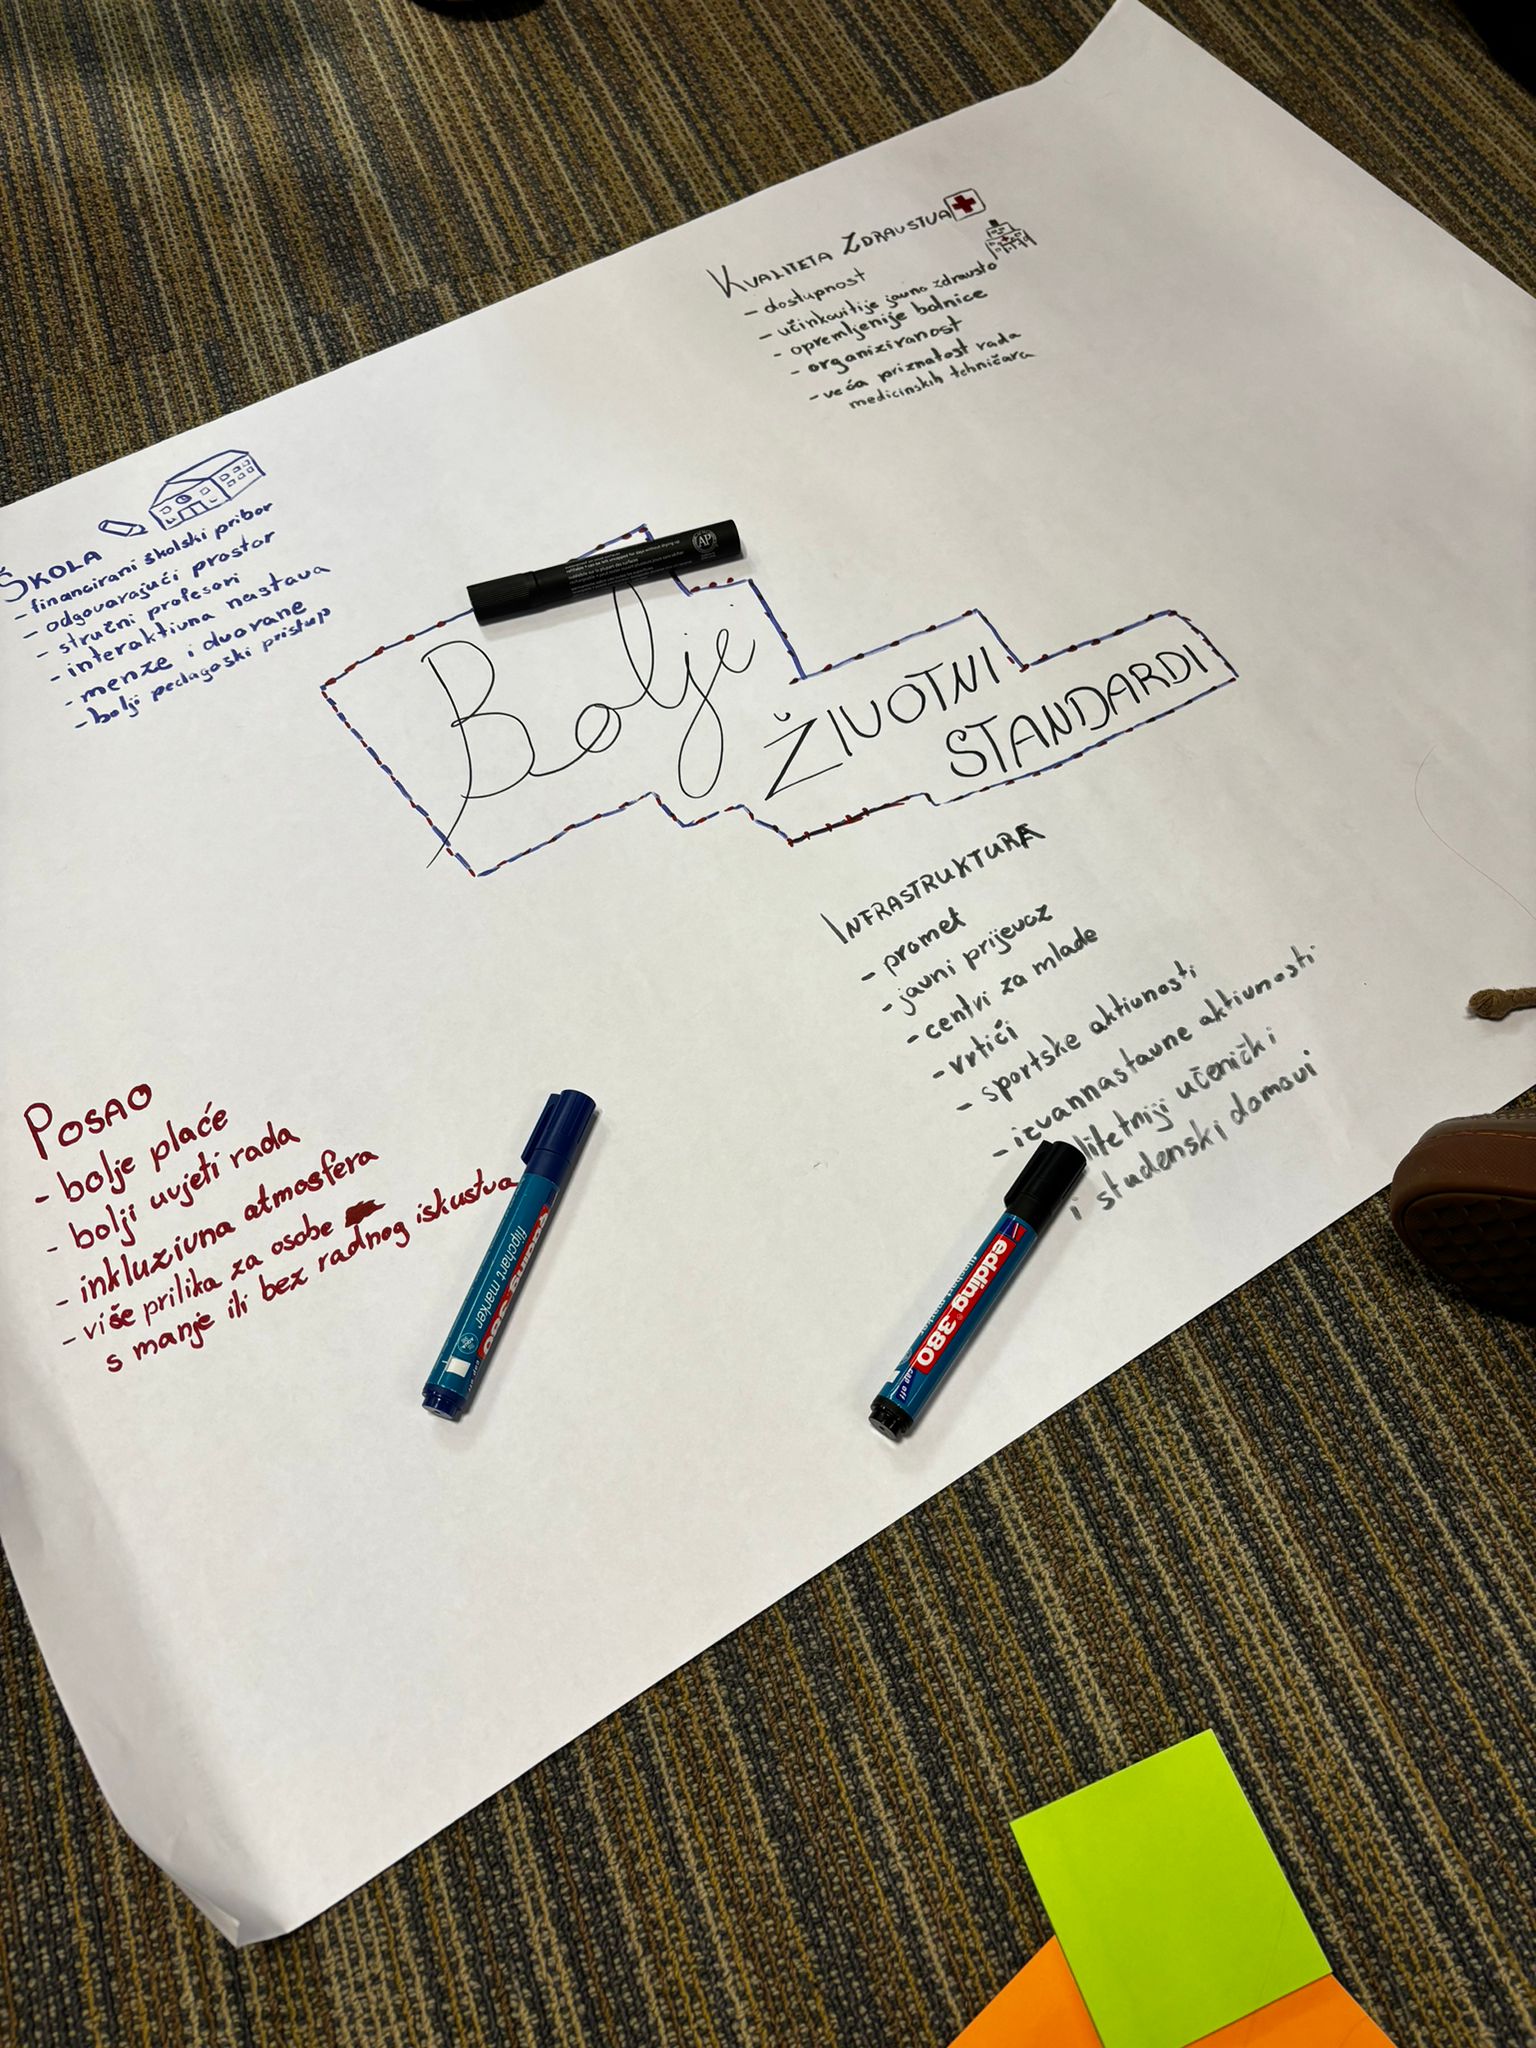 KVALITETA ZDRAVSTVA
- dostupnost
- učinkovitije javno zdravsto
- opremljenije bolnice
- organiziranost
- veća priznatost rada
medicinskih tehničara
ŠKOLA
- financirani školski pribor
- odgovarajući prostor
- stručni profesori
- interaktivna nastava
- menze i dvorane
- bolji pedagoški pristup
Bolje
ŽIVOTNI
STANDARDI
INFRASTRUKTURA
- promet
- javni prijevoz
- centri za mlade
- vrtići
- sportske aktivnosti
- izvannastavne aktivnosti
litetniji učenički
i studenski domovi
POSAO
- bolje plaće
- bolji uvjeti rada
- inkluzivna atmosfera
- više prilika za osobe
s manje ili bez radnog iskustva
edding 380
flipchart marker
edding 380
cap off
AP